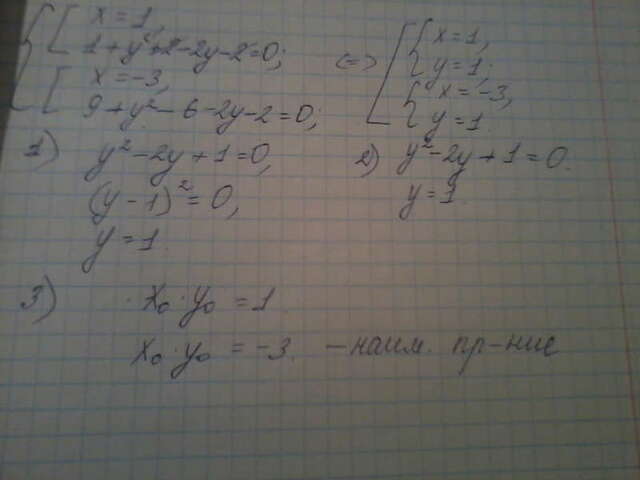 x = 1,
1 + y² + 2 - 2y - 2 = 0;
x = -3,
9 + y² - 6 - 2y - 2 = 0;
<=>
x = 1,
y = 1;
x = -3,
y = 1.
1) y² - 2y + 1 = 0,
(y - 1)² = 0,
y = 1.
2) y² - 2y + 1 = 0.
y = 1.
3) x₀ · y₀ = 1
x₀ · y₀ = -3. - наим. пр-ние